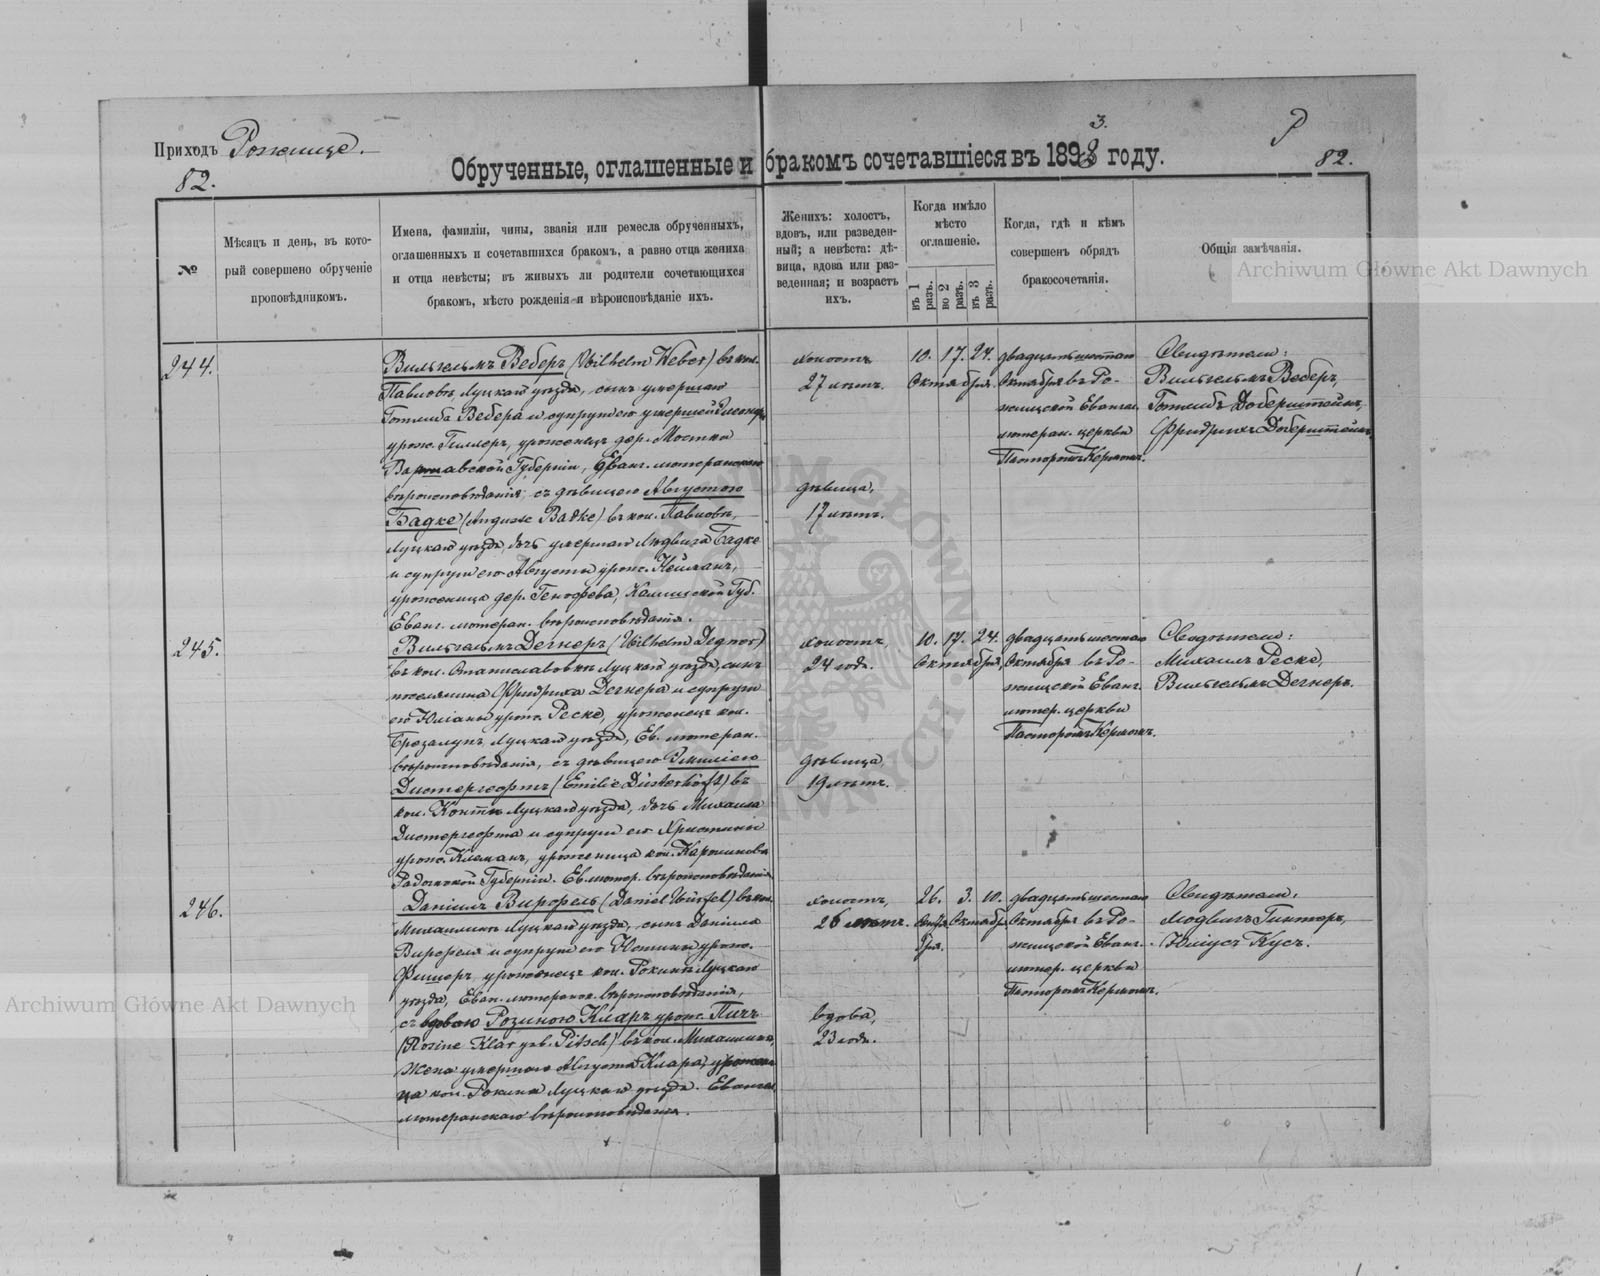 Приходъ Рожище.
82.
Обрученные, оглашенные и бракомъ сочетавшіеся въ 1893 году.
3.
82.
№
Мѣсяцъ и день, въ кото-
рый совершено обрученіе
проповѣдникомъ.
Имена, фамиліи, чины, званія или ремесла обрученныхъ,
оглашенныхъ и сочетавшихся бракомъ, а равно отца жениха
и отца невѣсты; въ живыхъ ли родители сочетающихся
бракомъ, мѣсто рожденія и вѣроисповѣданіе ихъ.
Женихъ: холостъ,
вдовъ, или разведен-
ный; а невѣста: дѣ-
вица, вдова или раз-
веденная; и возрастъ
ихъ.
Когда имѣло
мѣсто
оглашеніе.
въ 1 разъ.
во 2 разъ.
въ 3 разъ.
Когда, гдѣ и кѣмъ
совершенъ обрядъ
бракосочетанія.
Общія замѣчанія.
Archiwum Główne Akt Dawnych
244.
Вильгельмъ Веберъ (Wilhelm Weber) въ кол.
Павловкѣ, Луцкаго уѣзда, сынъ умершаго
Готлиба Вебера и супруги его умершей Элеоноры
урож. Пиллеръ, уроженецъ дер. Мостки
Варшавской Губерніи, Еванг. лютеранскаго
вѣроисповѣданія; съ дѣвицею Августою
Бадке (Auguste Badke) въ кол. Павловкѣ,
Луцкаго уѣзда, дочь умершаго Людвига Бадке
и супруги его Августы урож. Нейманъ,
уроженица дер. Генофева, Калишской Губ.
Еванг. лютеран. вѣроисповѣданія.
холостъ
27 лѣтъ.
дѣвица,
17 лѣтъ.
10. 17. 24.
Октября.
двадцать шестаго
Октября въ Ро-
жищской Евангел.
лютеран. церкви
Пасторомъ Керномъ.
Свидѣтели:
Вильгельмъ Веберъ,
Готлибъ Доберштейнъ,
Фридрихъ Доберштейнъ.
245.
Вильгельмъ Дегнеръ (Wilhelm Degner)
въ кол. Станиславовкѣ Луцкаго уѣзда, сынъ
поселянина Фридриха Дегнера и супруги
его Юліаны урож. Реске, уроженецъ кол.
Брезалупъ, Луцкаго уѣзда, Ев. лютеран.
вѣроисповѣданія, съ дѣвицею Эмиліею
Дистергефтъ (Emilie Düsterhöft) въ
кол. Луцкаго уѣзда, дочь Михаила
Дистергефта и супруги его Христины
урож. Клеманъ, уроженица кол. Каролинова
Радомской Губерніи. Ев. лютер. вѣроисповѣданія
холостъ,
24 года.
дѣвица
19 лѣтъ.
10. 17. 24.
Октября,
двадцать шестаго
Октября въ Ро-
жищской Еванг.
лютер. церкви
Пасторомъ Керномъ.
Свидѣтели:
Михаилъ Реске,
Вильгельмъ Дегнеръ.
246.
Даніилъ Вирфель (Daniel Würfel) въ кол.
Михалинѣ Луцкаго уѣзда, сынъ Даніила
Вирфеля и супруги его Юстины урож.
Фишеръ, уроженецъ кол. Рокини Луцкаго
уѣзда, Еван. лютеранск. вѣроисповѣданія,
съ вдовою Розиною Кларъ урож. Пичъ
(Rosine Klar geb. Pitsch) въ кол. Михалинѣ,
жена умершаго Августа Клара, урожени-
ца кол. Рокини Луцкаго уѣзда. Евангел.
лютеранскаго вѣроисповѣданія.
холостъ,
26 лѣтъ.
вдова,
23 года.
26. 3. 10.
Сентя- Октябр.
бря.
двадцать шестаго
Октября въ Ро-
жищской Еванг.
лютер. церкви
Пасторомъ Керномъ.
Свидѣтели:
Людвигъ Гинтеръ,
Юліусъ Кусъ.
Archiwum Główne Akt Dawnych